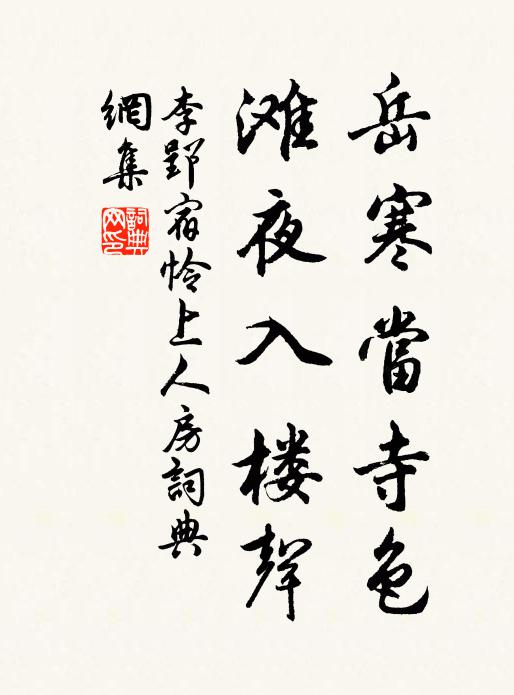 岳寒當寺色
滩夜入楼聲
李郢宿怜上人房詞典
網集
詞典
网印